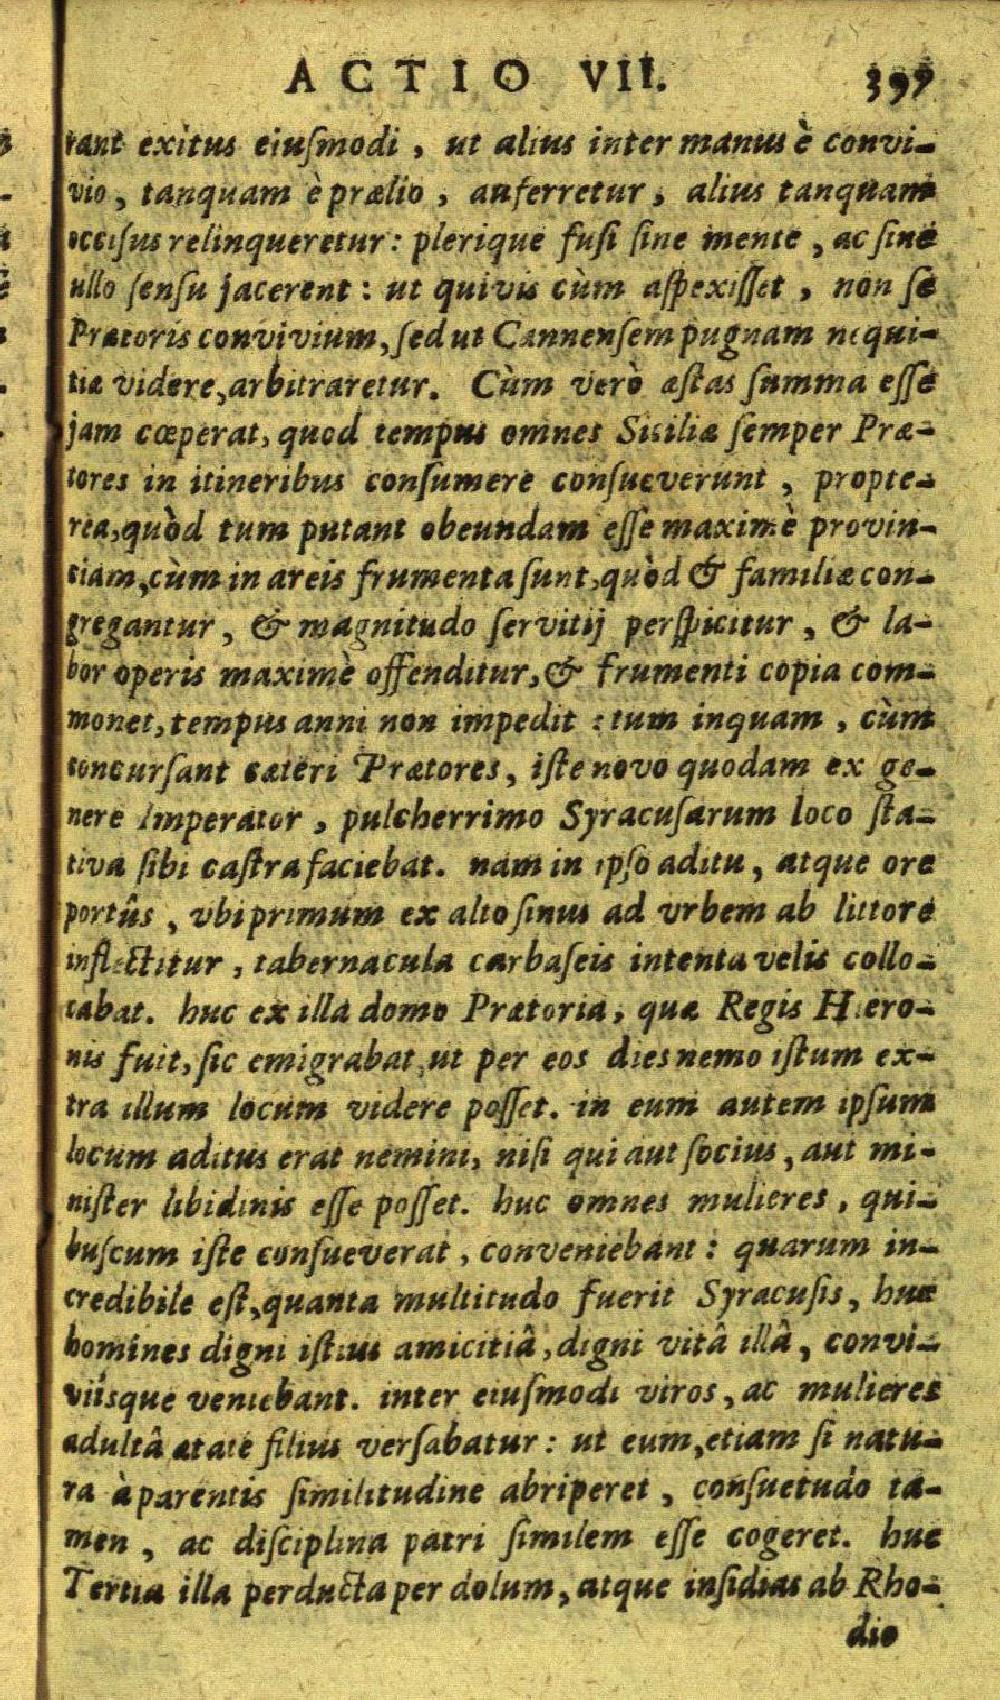 ACTIO VII. 397
tant exitus eiuſmodi, ut alius inter manus è convi-
vio, tanquam è prælio, auferretur, alius tanquam
occiſus relinqueretur: plerique fuſi ſine mente, ac ſine
ullo ſenſu jacerent: ut quivis cùm aſpexiſſet, non ſe
Prætoris convivium, ſed ut Cannenſem pugnam nequi-
tiæ videre, arbitraretur. Cùm verò æſtas ſumma eſſe
jam cœperat, quod tempus omnes Siciliæ ſemper Præ-
tores in itineribus conſumere conſueverunt, propte-
rea, quòd tum putant obeundam eſſe maximè provin-
tiam, cùm in areis frumenta ſunt, quòd & familiæ con-
gregantur, & magnitudo ſervitij perſpicitur, & la-
bor operis maximè offenditur, & frumenti copia com-
monet, tempus anni non impedit: tum inquam, cùm
concurſant cæteri Prætores, iſte novo quodam ex ge-
nere Imperator, pulcherrimo Syracuſarum loco ſta-
tiva ſibi caſtra faciebat. nam in ipſo aditu, atque ore
portûs, vbi primum ex alto ſinus ad vrbem ab littore
inflectitur, tabernacula carbaſeis intenta velis collo-
cabat. huc ex illa domo Prætoria, quæ Regis Hiero-
nis fuit, ſic emigrabat, ut per eos dies nemo iſtum ex-
tra illum locum videre poſſet. in eum autem ipſum
locum aditus erat nemini, niſi qui aut ſocius, aut mi-
niſter libidinis eſſe poſſet. huc omnes mulieres, qui-
buſcum iſte conſueverat, conveniebant: quarum in-
credibile eſt, quanta multitudo fuerit Syracuſis, huc
homines digni iſtius amicitiâ, digni vitâ illâ, convi-
viisque veniebant. inter eiuſmodi viros, ac mulieres
adultâ ætate filius verſabatur: ut eum, etiam ſi natu-
ra à parentis ſimilitudine abriperet, conſuetudo ta-
men, ac diſciplina patri ſimilem eſſe cogeret. huc
Tertia illa perducta per dolum, atque inſidias ab Rho-
dio